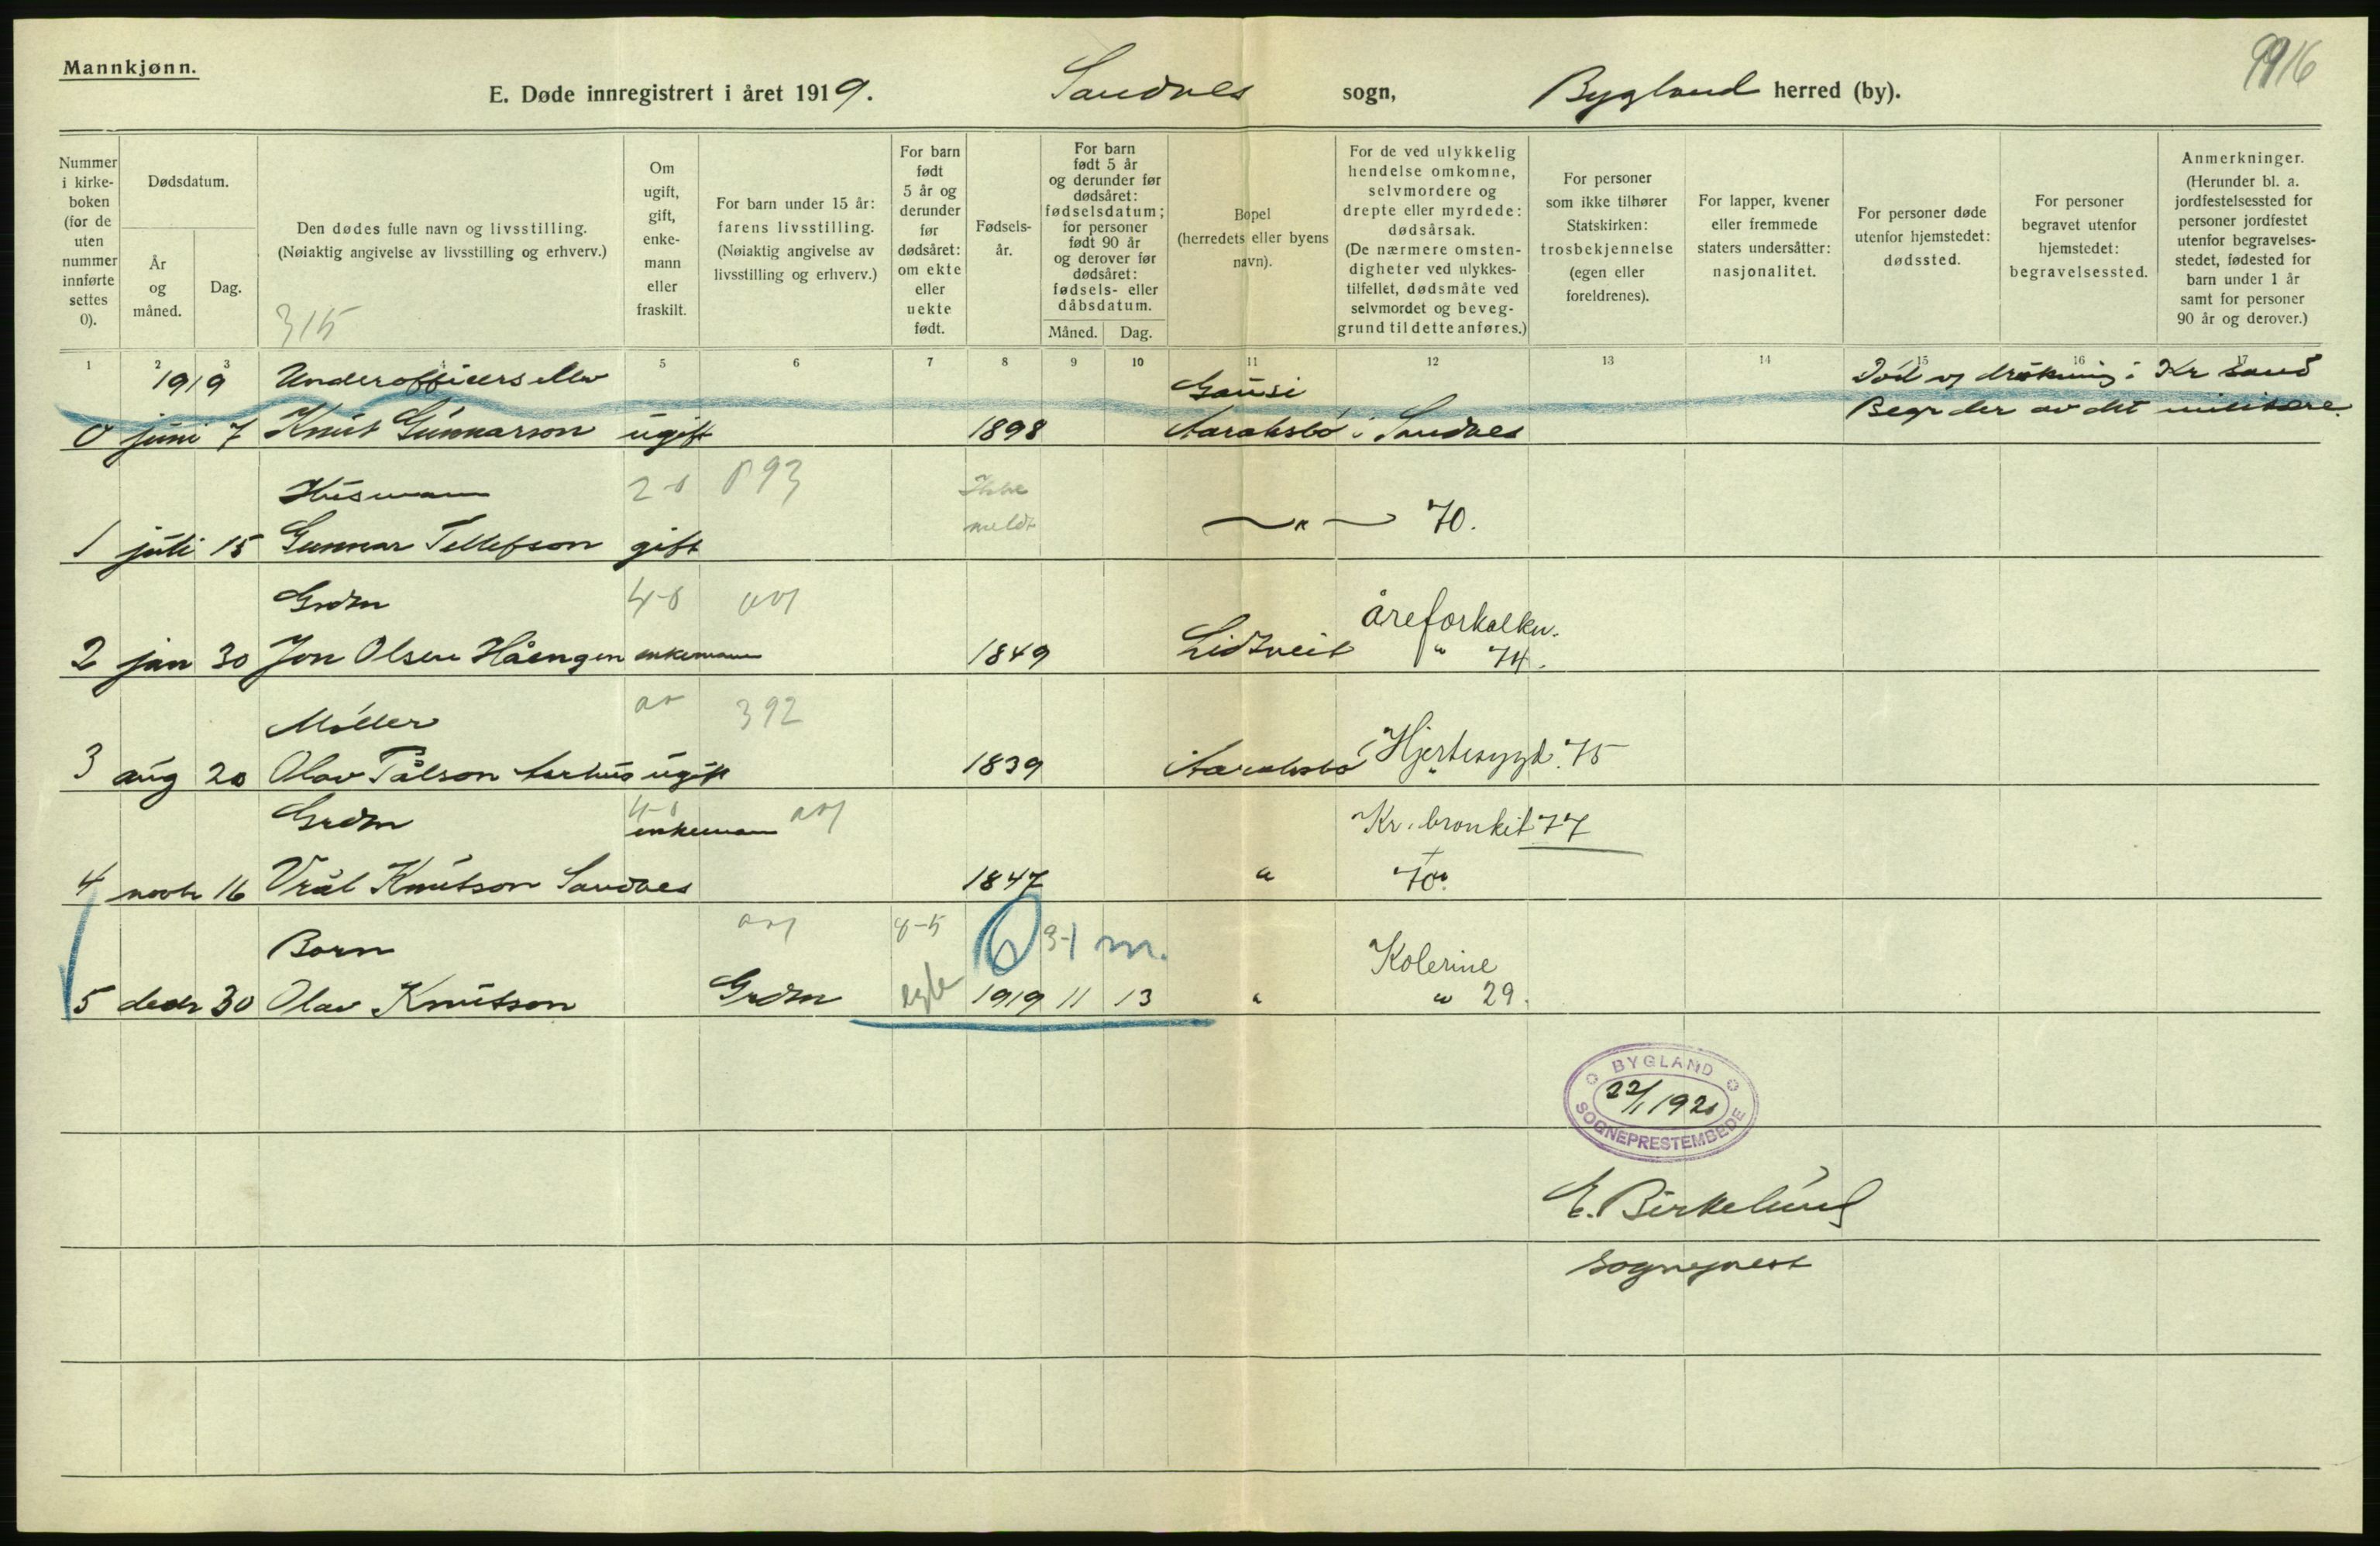 Mannkjønn.
9916
E. Døde innregistrert i året 1919. Sandnes sogn, Bygland herred (by).
Nummer i kirke- boken (for de uten nummer innførte settes 0).
Dødsdatum.
År og måned.
Dag.
Den dødes fulle navn og livsstilling.
(Nøiaktig angivelse av livsstilling og erhverv.)
315
Om ugift, gift, enke- mann eller fraskilt.
For barn under 15 år: farens livsstilling. (Nøiaktig angivelse av livsstilling og erhverv.)
For barn født 5 år og derunder før dødsåret: om ekte eller uekte født.
Fødsels- år.
For barn født 5 år og derunder før dødsåret: fødselsdatum; for personer født 90 år og derover før dødsåret: fødsels- eller dåbsdatum.
Måned.
Dag.
Bopel (herredets eller byens navn).
For de ved ulykkelig hendelse omkomne, selvmordere og drepte eller myrdede: dødsårsak. (De nærmere omsten- digheter ved ulykkes- tilfellet, dødsmåte ved selvmordet og beveg- grund til dette anføres.)
For personer som ikke tilhører Statskirken: trosbekjennelse (egen eller foreldrenes).
For lapper, kvener eller fremmede staters undersåtter: nasjonalitet.
For personer døde utenfor hjemstedet: dødssted.
For personer begravet utenfor hjemstedet: begravelsessted.
Anmerkninger. (Herunder bl. a. jordfestelsessted for personer jordfestet utenfor begravelses- stedet, fødested for barn under 1 år samt for personer 90 år og derover.)
1 2 3 5 6 7 8 9 10 11 12 13 14 15 16 17
1919 Underofficerselev Død v drukning i Kr sand
0 juni 7 Knut Gunnarson ugift 1898 Aaraksbø i Sandnes Begr der av det militære
Husmann 2-0 893 Ikke meldt
1 juli 15 Gunnar Tellefson gift 70.
Grdm 4-0 åreforkalkn.
2 jan 30 Jon Olsen Håengen enkemann 1849 Lidtveit " 74.
Møller 392
3 aug 20 Olav Pålson Aarhus ugift 1839 Aaraksbø Hjertesygd. 75
Grdm 4-0 enkemann Kr. bronkit 77
4 novbr 16 Vrål Knutson Sandnes 1847 " 70.
Barn 4-5 0 3-1 m. Kolerine
5 decbr 30 Olav Knutson Grdm egte 1919 11 13 " " 29.
BYGLAND
22/1 1920
SOGNEPRESTEMBEDE
E. Birkelund
sogneprest